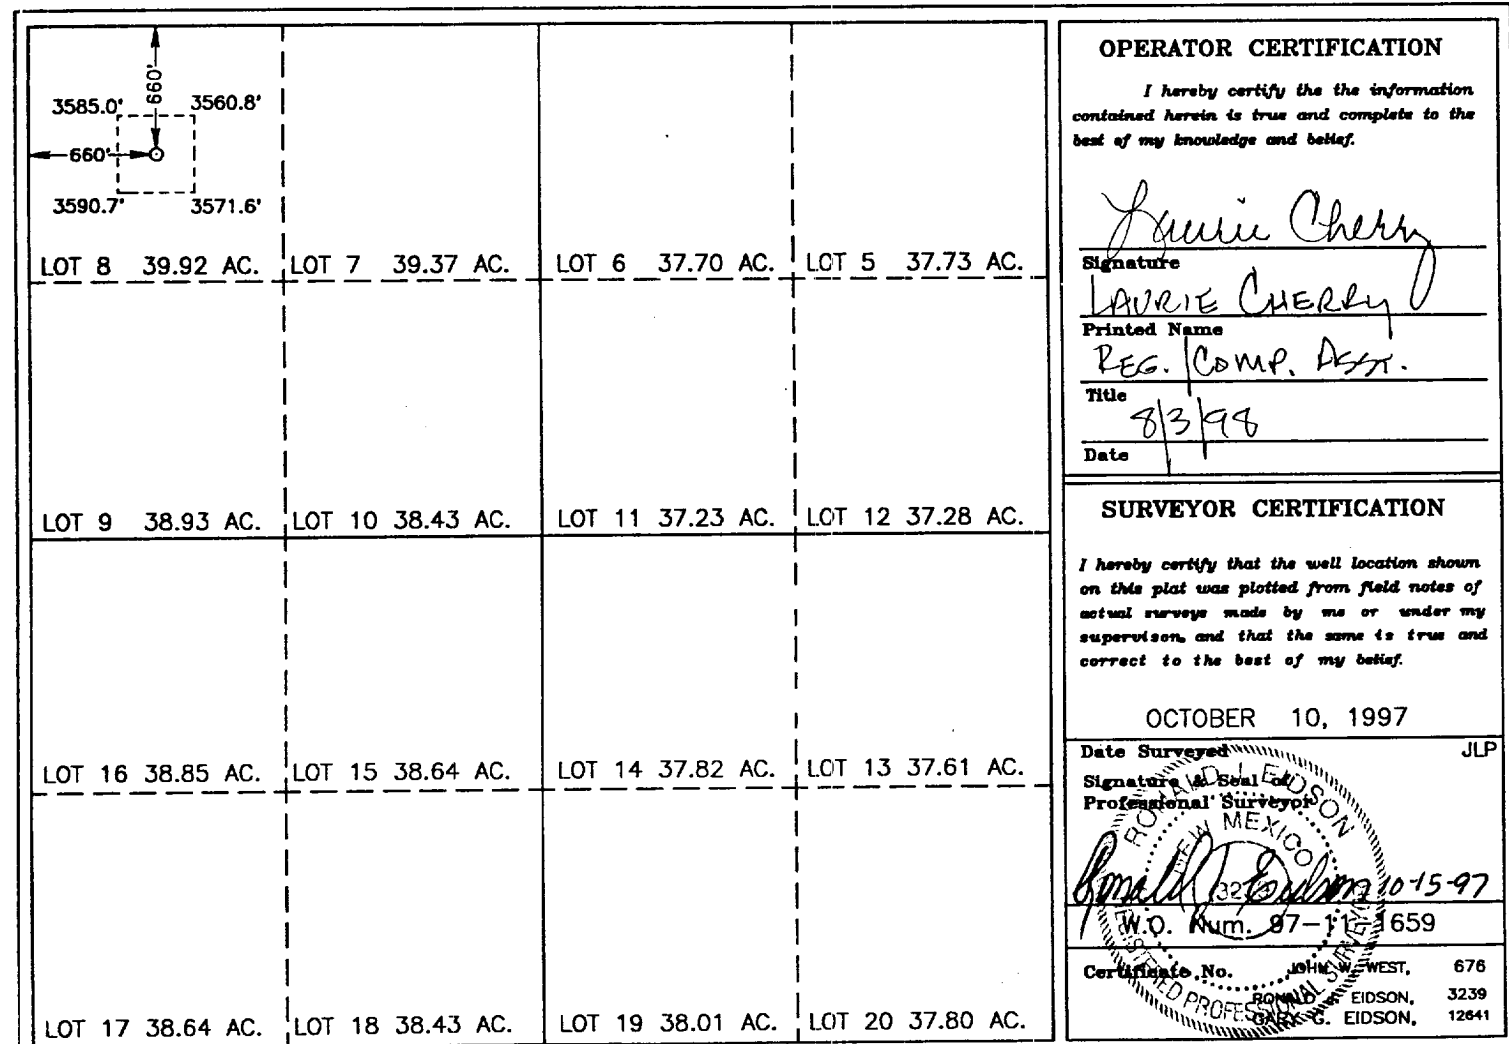 660'
3585.0' 3560.8'
660'
3590.7' 3571.6'
LOT 8 39.92 AC. LOT 7 39.37 AC. LOT 6 37.70 AC. LOT 5 37.73 AC.
LOT 9 38.93 AC. LOT 10 38.43 AC. LOT 11 37.23 AC. LOT 12 37.28 AC.
LOT 16 38.85 AC. LOT 15 38.64 AC. LOT 14 37.82 AC. LOT 13 37.61 AC.
LOT 17 38.64 AC. LOT 18 38.43 AC. LOT 19 38.01 AC. LOT 20 37.80 AC.
OPERATOR CERTIFICATION
I hereby certify the the information
contained herein is true and complete to the
best of my knowledge and belief.
Laurie Cherry
Signature
LAURIE CHERRY
Printed Name
REG. COMP. ASST.
Title
8/3/98
Date
SURVEYOR CERTIFICATION
I hereby certify that the well location shown
on this plat was plotted from field notes of
actual surveys made by me or under my
supervison, and that the same is true and
correct to the best of my belief.
OCTOBER 10, 1997
Date Surveyed JLP
Signature & Seal of
Professional Surveyor
RONALD J. EIDSON
NEW MEXICO
3239
REGISTERED PROFESSIONAL SURVEYOR
Ronald J. Eidson 10-15-97
W.O. Num. 97-11-1659
Certificate No. JOHN W. WEST, 676
RONALD J. EIDSON, 3239
GARY G. EIDSON, 12641